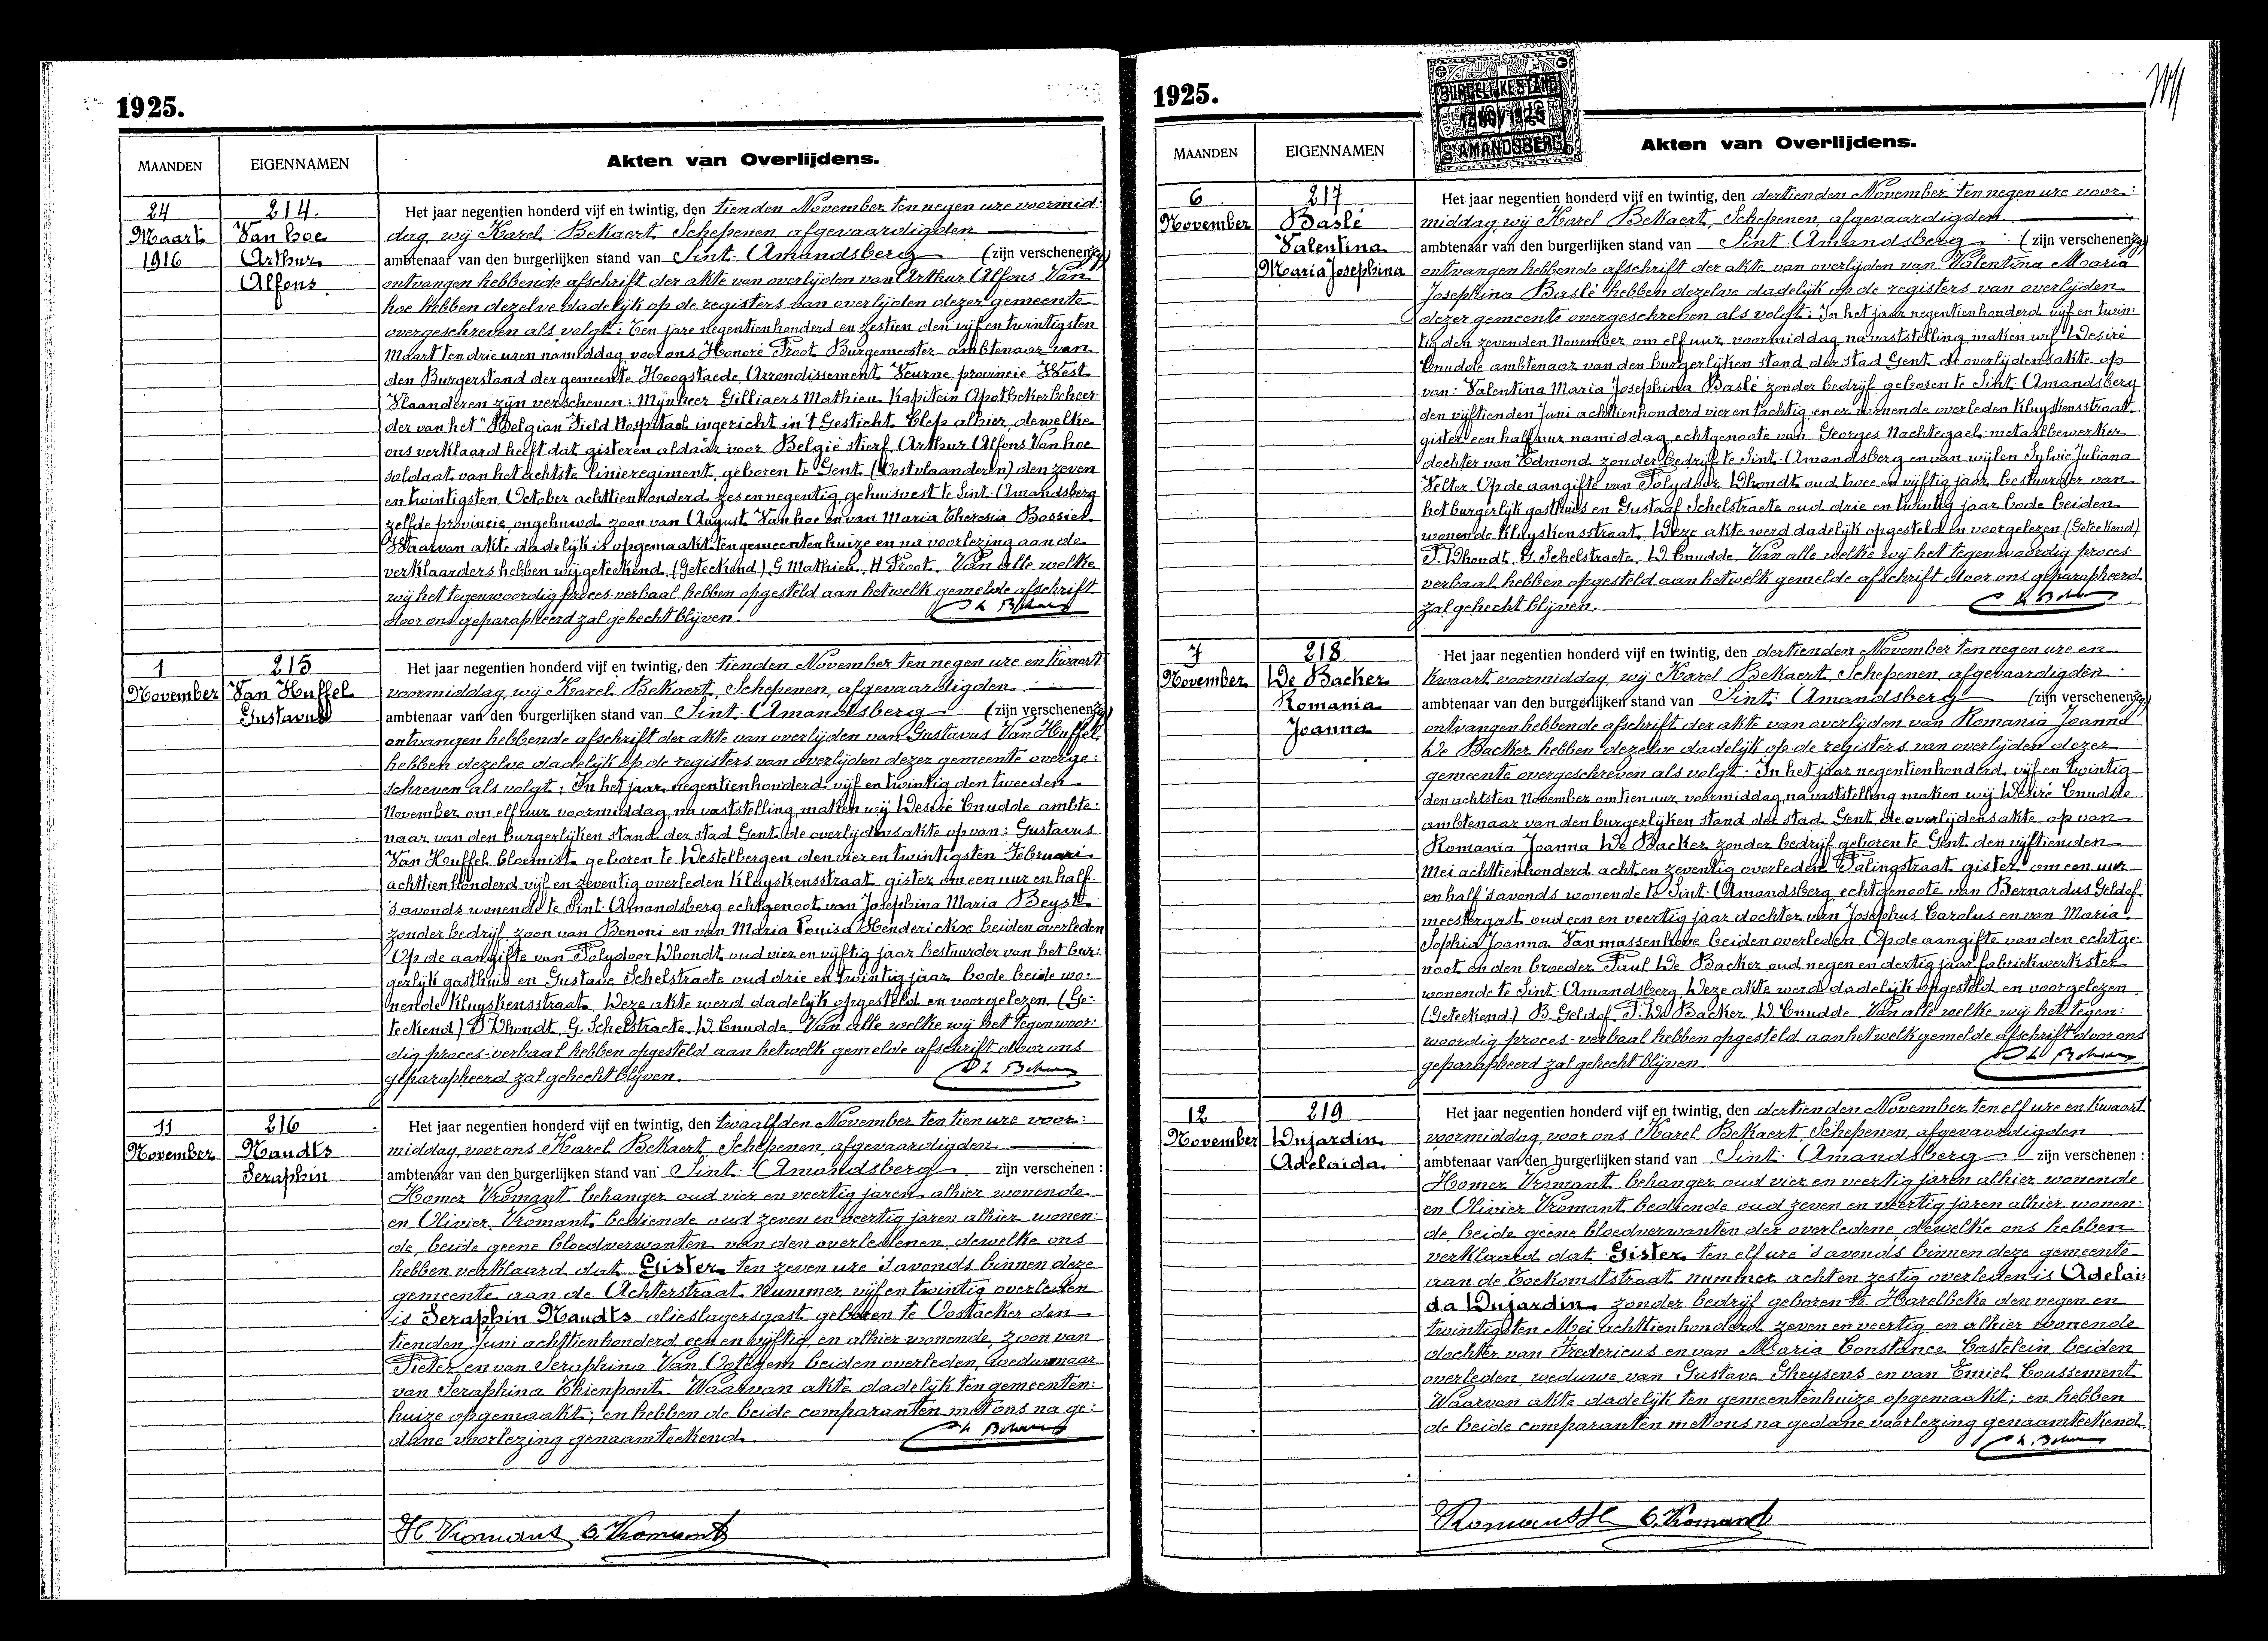 1925.
MAANDEN
EIGENNAMEN
Akten van Overlijdens.
24
Maart
1916
214.
Van hoe
Arthur
Alfons
Het jaar negentien honderd vijf en twintig, den tienden November ten negen ure voormid-
dag, wij Karel Bekaert, Schepenen, afgevaardigden
ambtenaar van den burgerlijken stand van Sint-Amandsberg (zijn verschenen)
ontvangen hebbende afschrift der akte van overlijden van Arthur Alfons Van
hoe hebben dezelve dadelijk op de registers van overlijden dezer gemeente
overgeschreven als volgt: Ten jare negentienhonderd en zestien den vijf en twintigsten
Maart ten drie uren namiddag voor ons Honoré Froot Burgemeester ambtenaar van
den Burgerstand der gemeente Hoogstaede, Arrondissement Veurne, provincie West
Vlaanderen zijn verschenen: Mijnheer Gilliaers Mathieu Kapitein Apothekerbeheer:
der van het "Belgian Field Hospital ingericht in 't Gesticht Clep alhier, dewelke
ons verklaard heeft dat gisteren aldaar voor België stierf Arthur Alfons Van hoe
soldaat van het achtste linieregiment, geboren te Gent (Oostvlaanderen) den zeven
en twintigsten October achttienhonderd zes en negentig gehuisvest te Sint-Amandsberg
zelfde provincie, ongehuwd, zoon van August Van hoe en van Maria Theresia Bossier
Waarvan akte dadelijk is opgemaakt ten gemeentenhuize en na voorlezing aan de
verklaarders hebben wij geteekend. (Geteekend) G. Mathieu. H Froot. Van alle welke
wij het tegenwoordig proces-verbaal hebben opgesteld aan hetwelk gemelde afschrift
door ons geparapheerd zal gehecht blijven.
1
November
215
Van Huffel
Gustavus
Het jaar negentien honderd vijf en twintig, den tienden November ten negen ure en kwaart
voormiddag, wij Karel Bekaert, Schepenen, afgevaardigden
ambtenaar van den burgerlijken stand van Sint-Amandsberg (zijn verschenen)
ontvangen hebbende afschrift der akte van overlijden van Gustavus Van Huffel
hebben dezelve dadelijk op de registers van overlijden dezer gemeente overge:
schreven als volgt: In het jaar negentienhonderd vijf en twintig den tweeden
November om elf uur voormiddag, na vaststelling, maken wij Desiré Cnudde ambte:
naar van den burgerlijken stand der stad Gent de overlijdensakte op van: Gustavus
Van Huffel bloemist geboren te Destelbergen den vier en twintigsten Februari
achttienhonderd vijf en zeventig overleden Kluyskensstraat gister om een uur en half
's avonds wonende te Sint-Amandsberg echtgenoot van Josephina Maria Beyst
zonder bedrijf, zoon van Benoni en van Maria Louisa Henderickse beiden overleden
Op de aangifte van Polydoor Dhondt oud vier en vijftig jaar bestuurder van het bur:
gerlijk gasthuis en Gustave Schelstraete oud drie en twintig jaar bode beide wo:
nende Kluyskensstraat. Deze akte werd dadelijk opgesteld en voorgelezen. (Ge:
teekend) P. Dhondt, G. Schelstraete, D. Cnudde. Van alle welke wij het tegenwoor:
dig proces-verbaal hebben opgesteld aan hetwelk gemelde afschrift door ons
geparapheerd zal gehecht blijven.
11
November
216
Naudts
Seraphin
Het jaar negentien honderd vijf en twintig, den twaalfden November ten tien ure voor:
middag, voor ons Karel Bekaert, Schepenen, afgevaardigden
ambtenaar van den burgerlijken stand van Sint-Amandsberg zijn verschenen:
Homer Vromant behanger oud vier en veertig jaren alhier wonende
en Olivier Vromant bediende oud zeven en veertig jaren alhier wonen:
de, beide geene bloedverwanten van den overledenen, dewelke ons
hebben verklaard dat Gister ten zeven ure 's avonds binnen deze
gemeente aan de Achterstraat nummer vijf en twintig overleden
is Seraphin Naudts olieslagersgast geboren te Oostacker den
tienden Juni achttienhonderd een en vijftig, en alhier wonende, zoon van
Pieter en van Seraphina Van Ootegem beiden overleden, weduwnaar
van Seraphina Thienpont. Waarvan akte dadelijk ten gemeenten:
huize opgemaakt; en hebben de beide comparanten met ons na ge:
dane voorlezing genaamteekend.
H Vromant O. Vromant
1925.
BURGERLIJKE STAND
13 NOV 1925
ST AMANDSBERG
MAANDEN
EIGENNAMEN
Akten van Overlijdens.
6
November
217
Baslé
Valentina
Maria Josephina
Het jaar negentien honderd vijf en twintig, den dertienden November ten negen ure voor:
middag, wij Karel Bekaert, Schepenen, afgevaardigden
ambtenaar van den burgerlijken stand van Sint-Amandsberg (zijn verschenen)
ontvangen hebbende afschrift der akte van overlijden van Valentina Maria
Josephina Baslé hebben dezelve dadelijk op de registers van overlijden
dezer gemeente overgeschreven als volgt: In het jaar negentienhonderd vijf en twin:
tig den zevenden November om elf uur voormiddag na vaststelling maken wij Desiré
Cnudde ambtenaar van den burgerlijken stand der stad Gent de overlijdensakte op
van: Valentina Maria Josephina Baslé zonder bedrijf geboren te Sint-Amandsberg
den vijftienden Juni achttienhonderd vier en tachtig en er wonende overleden Kluyskensstraat
gister een half uur namiddag echtgenoote van Georges Nachtegael metaalbewerker
dochter van Edmond zonder bedrijf te Sint-Amandsberg en van wijlen Sylvie Juliana
Velter. Op de aangifte van Polydoor Dhondt oud twee en vijftig jaar bestuurder van
het burgerlijk gasthuis en Gustaaf Schelstraete oud drie en twintig jaar bode beiden
wonende Kluyskensstraat. Deze akte werd dadelijk opgesteld en voorgelezen (Geteekend)
P. Dhondt, G. Schelstraete, D. Cnudde. Van alle welke wij het tegenwoordig proces-
verbaal hebben opgesteld aan hetwelk gemelde afschrift door ons geparapheerd
zal gehecht blijven.
7
November
218
De Backer
Romania
Joanna
Het jaar negentien honderd vijf en twintig, den dertienden November ten negen ure en
kwaart voormiddag, wij Karel Bekaert, Schepenen, afgevaardigden
ambtenaar van den burgerlijken stand van Sint-Amandsberg (zijn verschenen)
ontvangen hebbende afschrift der akte van overlijden van Romania Joanna
De Backer hebben dezelve dadelijk op de registers van overlijden dezer
gemeente overgeschreven als volgt: In het jaar negentienhonderd vijf en twintig
den achtsten November om tien uur voormiddag na vaststelling maken wij Desiré Cnudde
ambtenaar van den burgerlijken stand der stad Gent, de overlijdensakte op van
Romania Joanna De Backer zonder bedrijf geboren te Gent den vijftienden
Mei achttienhonderd acht en zeventig overleden Palingstraat gister om een uur
en half 's avonds wonende te Sint-Amandsberg echtgenoote van Bernardus Geldof
meestergast oud een en veertig jaar dochter van Josephus Carolus en van Maria
Sophia Joanna Vanmassenhove beiden overleden. Op de aangifte van den echtge:
noot en den broeder Paul De Backer oud negen en dertig jaar fabriekwerkster
wonende te Sint-Amandsberg. Deze akte werd dadelijk opgesteld en voorgelezen.
(Geteekend) B. Geldof, P. De Backer, D. Cnudde. Van alle welke wij het tegen:
woordig proces-verbaal hebben opgesteld aan hetwelk gemelde afschrift door ons
geparapheerd zal gehecht blijven.
12
November
219
Dujardin
Adelaida
Het jaar negentien honderd vijf en twintig, den dertienden November ten elf ure en kwaart
voormiddag, voor ons Karel Bekaert, Schepenen, afgevaardigden
ambtenaar van den burgerlijken stand van Sint-Amandsberg zijn verschenen:
Homer Vromant behanger oud vier en veertig jaren alhier wonende
en Olivier Vromant bediende oud zeven en veertig jaren alhier wonen:
de, beide geene bloedverwanten der overledene, dewelke ons hebben
verklaard dat Gister ten elf ure 's avonds binnen deze gemeente
aan de Toekomststraat nummer acht en zestig overleden is Adelai:
da Dujardin, zonder bedrijf geboren te Harelbeke den negen en
twintigsten Mei achttienhonderd zeven en veertig en alhier wonende
dochter van Fredericus en van Maria Constance Castelein beiden
overleden, weduwe van Gustave Gheysens en van Emiel Coussement.
Waarvan akte dadelijk ten gemeentenhuize opgemaakt; en hebben
de beide comparanten met ons na gedane voorlezing genaamteekend.
Vromant H O. Vromant